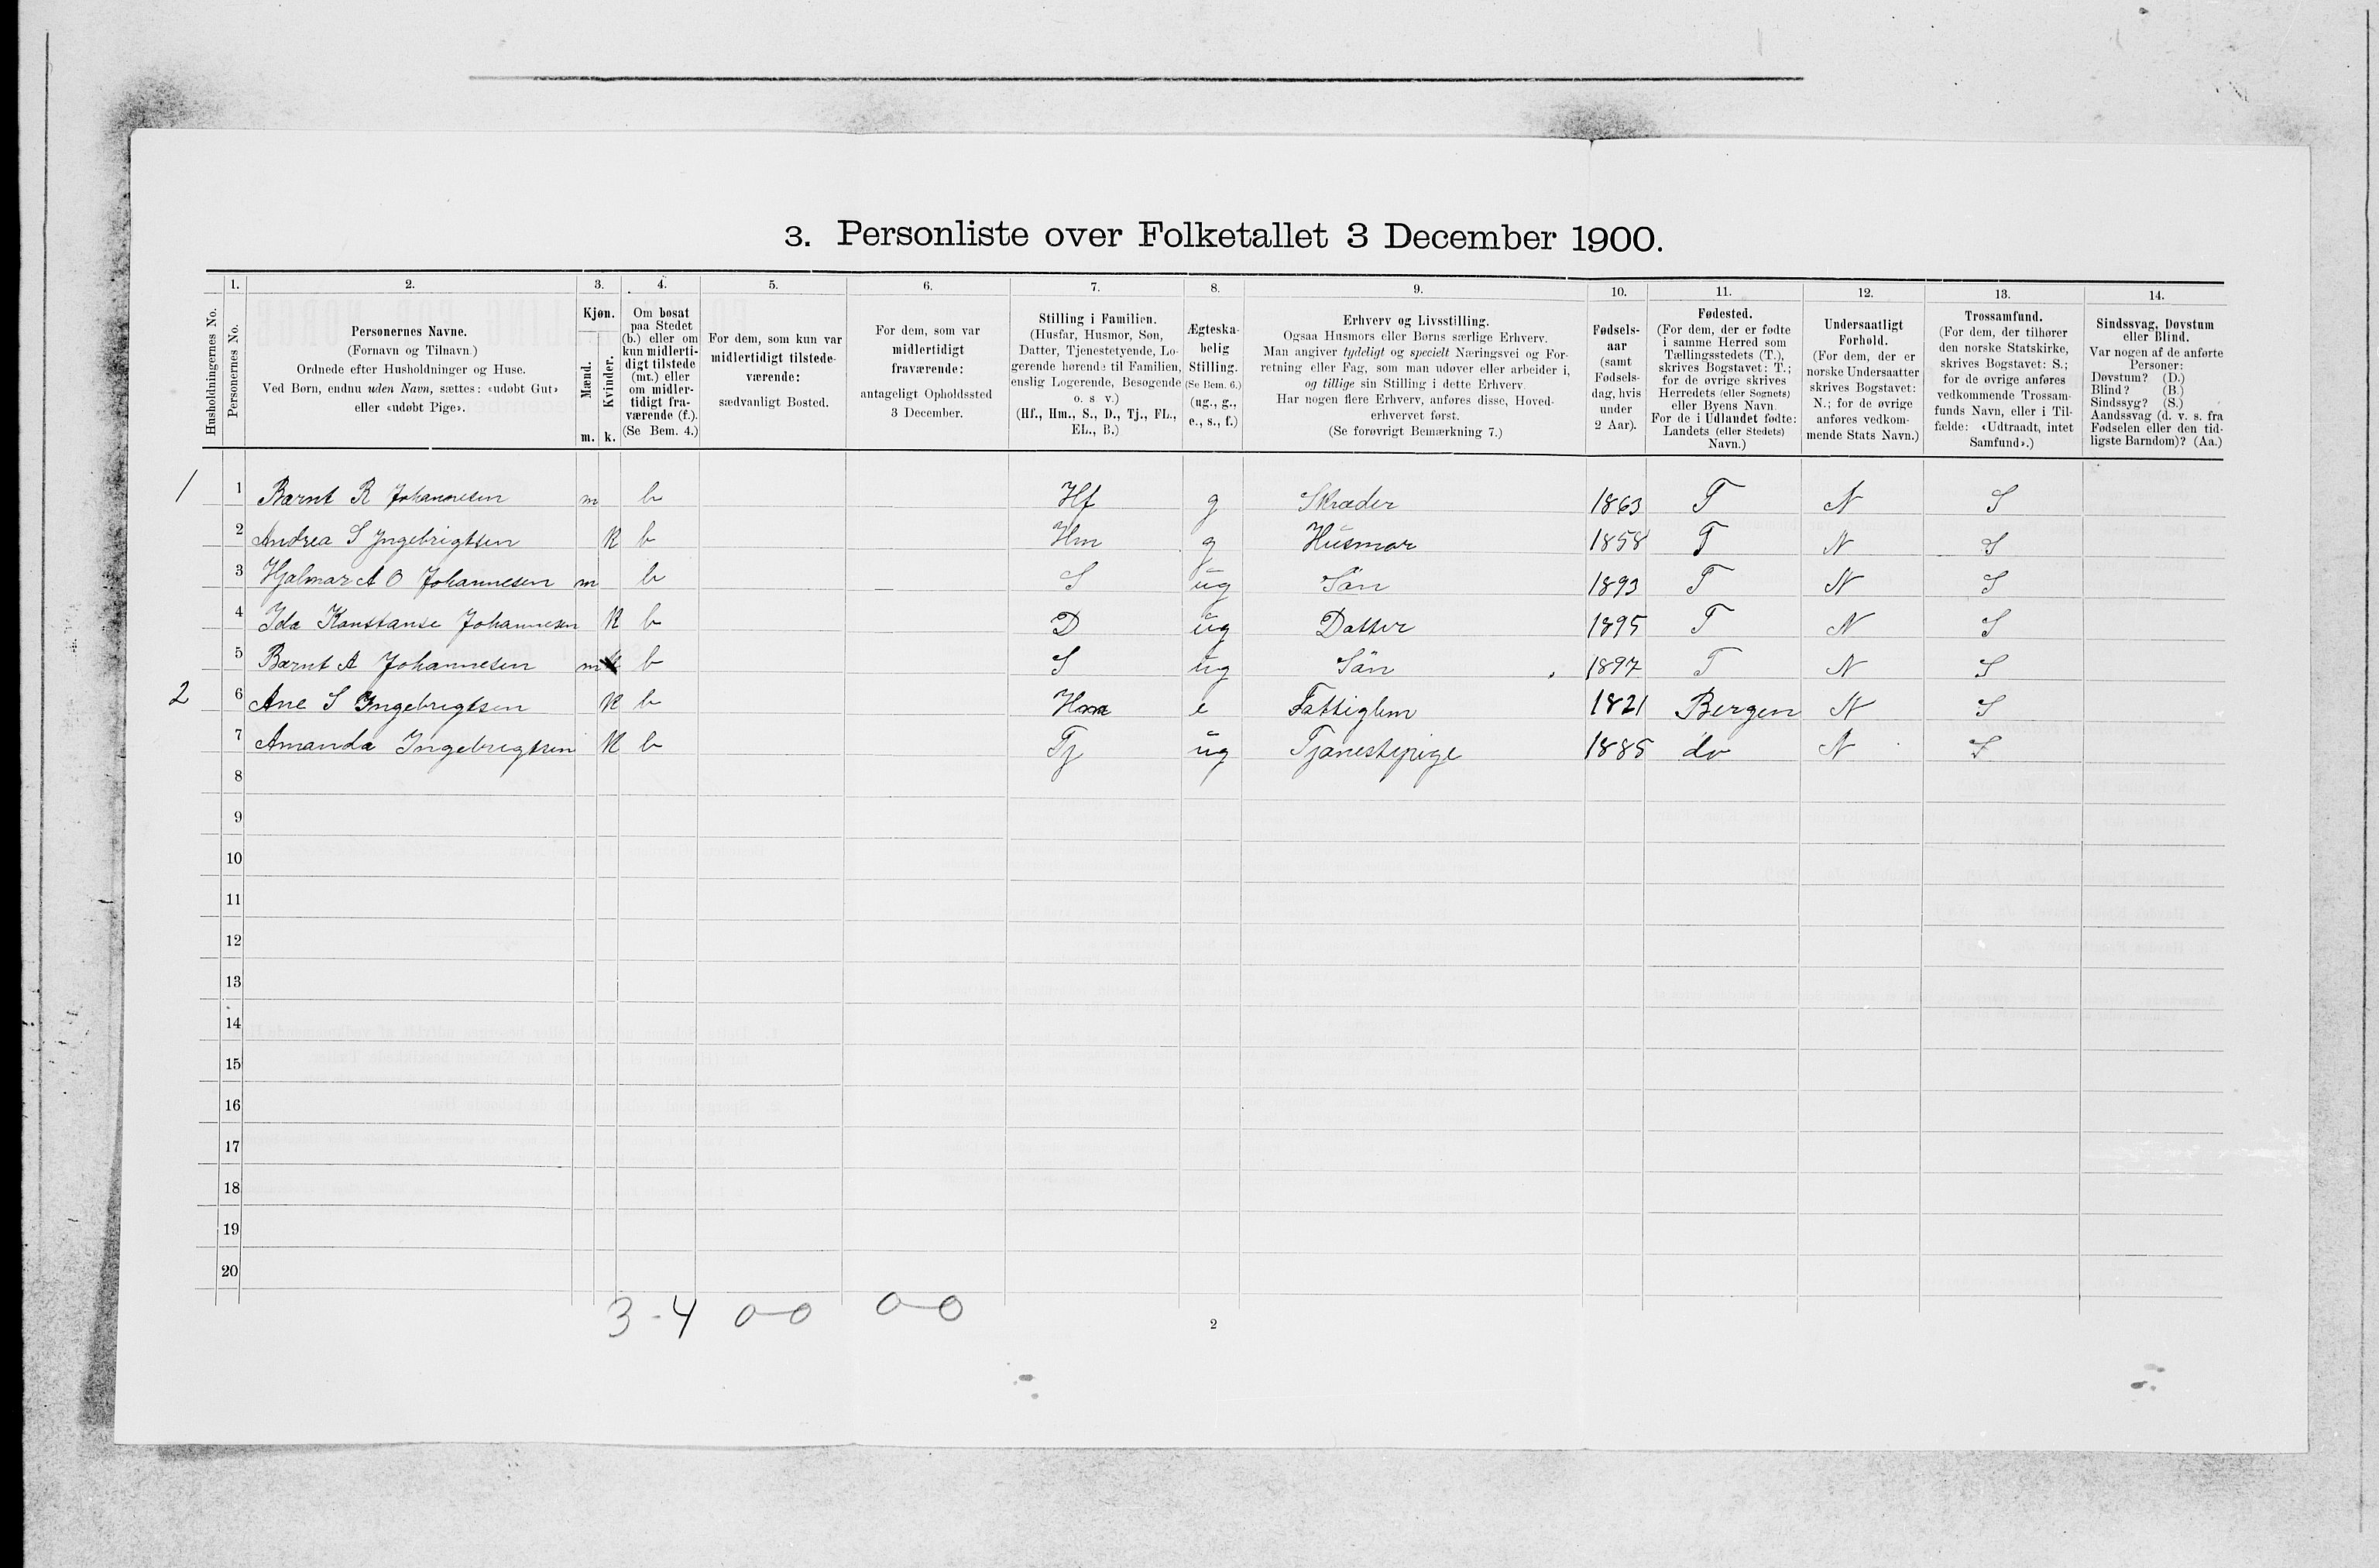 3. Personliste over Folketallet 3 December 1900.
1. 2. 3. 4. 5. 6. 7. 8. 9. 10. 11. 12. 13. 14.
Husholdningernes No.
Personernes No.
Personernes Navne.
(Fornavn og Tilnavn.)
Ordnede efter Husholdninger og Huse.
Ved Børn, endnu uden Navn, sættes: «udøbt Gut»
eller «udøbt Pige».
Kjøn.
Mænd.
Kvinder.
m. k.
Om bosat
paa Stedet
(b.) eller om
kun midlerti-
digt tilstede
(mt.) eller
om midler-
tidigt fra-
værende (f.).
(Se Bem. 4.)
For dem, som kun var
midlertidigt tilstede-
værende:
sædvanligt Bosted.
For dem, som var
midlertidigt
fraværende:
antageligt Opholdssted
3 December.
Stilling i Familien.
(Husfar, Husmor, Søn,
Datter, Tjenestetyende, Lo-
gerende hørende til Familien,
enslig Logerende, Besøgende
o. s v.)
(Hf., Hm., S., D., Tj., FL.,
EL., B.)
Ægteska-
belig
Stilling.
(Se Bem. 6.)
(ug., g.,
e., s., f.)
Erhverv og Livsstilling.
Ogsaa Husmors eller Børns særlige Erhverv.
Man angiver tydeligt og specielt Næringsvei og For-
retning eller Fag, som man udøver eller arbeider i,
og tillige sin Stilling i dette Erhverv.
Har nogen flere Erhverv, anføres disse, Hoved-
erhvervet først.
(Se forøvrigt Bemærkning 7.)
Fødsels-
aar
(samt
Fødsels-
dag, hvis
under
2 Aar).
Fødested.
(For dem, der er fødte
i samme Herred som
Tællingsstedets (T.),
skrives Bogstavet: T.;
for de øvrige skrives
Herredets (eller Sognets)
eller Byens Navn.
For de i Udlandet fødte:
Landets (eller Stedets)
Navn.)
Undersaatligt
Forhold.
(For dem, der er
norske Undersaatter
skrives Bogstavet:
N.; for de øvrige
anføres vedkom-
mende Stats Navn.)
Trossamfund.
(For dem, der tilhører
den norske Statskirke,
skrives Bogstavet: S.;
for de øvrige anføres
vedkommende Trossam-
funds Navn, eller i Til-
fælde: «Udtraadt, intet
Samfund».)
Sindssvag, Døvstum
eller Blind.
Var nogen af de anførte
Personer:
Døvstum? (D.)
Blind? (B.)
Sindssyg? (S.)
Aandssvag (d. v. s. fra
Fødselen eller den tid-
ligste Barndom)? (Aa.)
1 1 Bærnt R Johannesen m b Hf g Skræder 1863 T N S
2 Andrea S Yngebrigtsen K b Hm g Husmor 1858 T N S
3 Hjalmar A O Johannesen m b S ug Sön 1893 T N S
4 Ida Konstanse Johannesen K b D ug Datter 1895 T N S
5 Bærnt A Johannesen m b S ug Sön 1897 T N S
2 6 Ane S Yngebrigtsen K b Hm e Fattiglem 1821 Bergen N S
7 Amanda Ingebrigtsen K b Tj ug Tjänestepige 1885 do N S
8
9
10
11
12
13
14
15
16
17
18
19
20
3-4 0-0 0-0
2